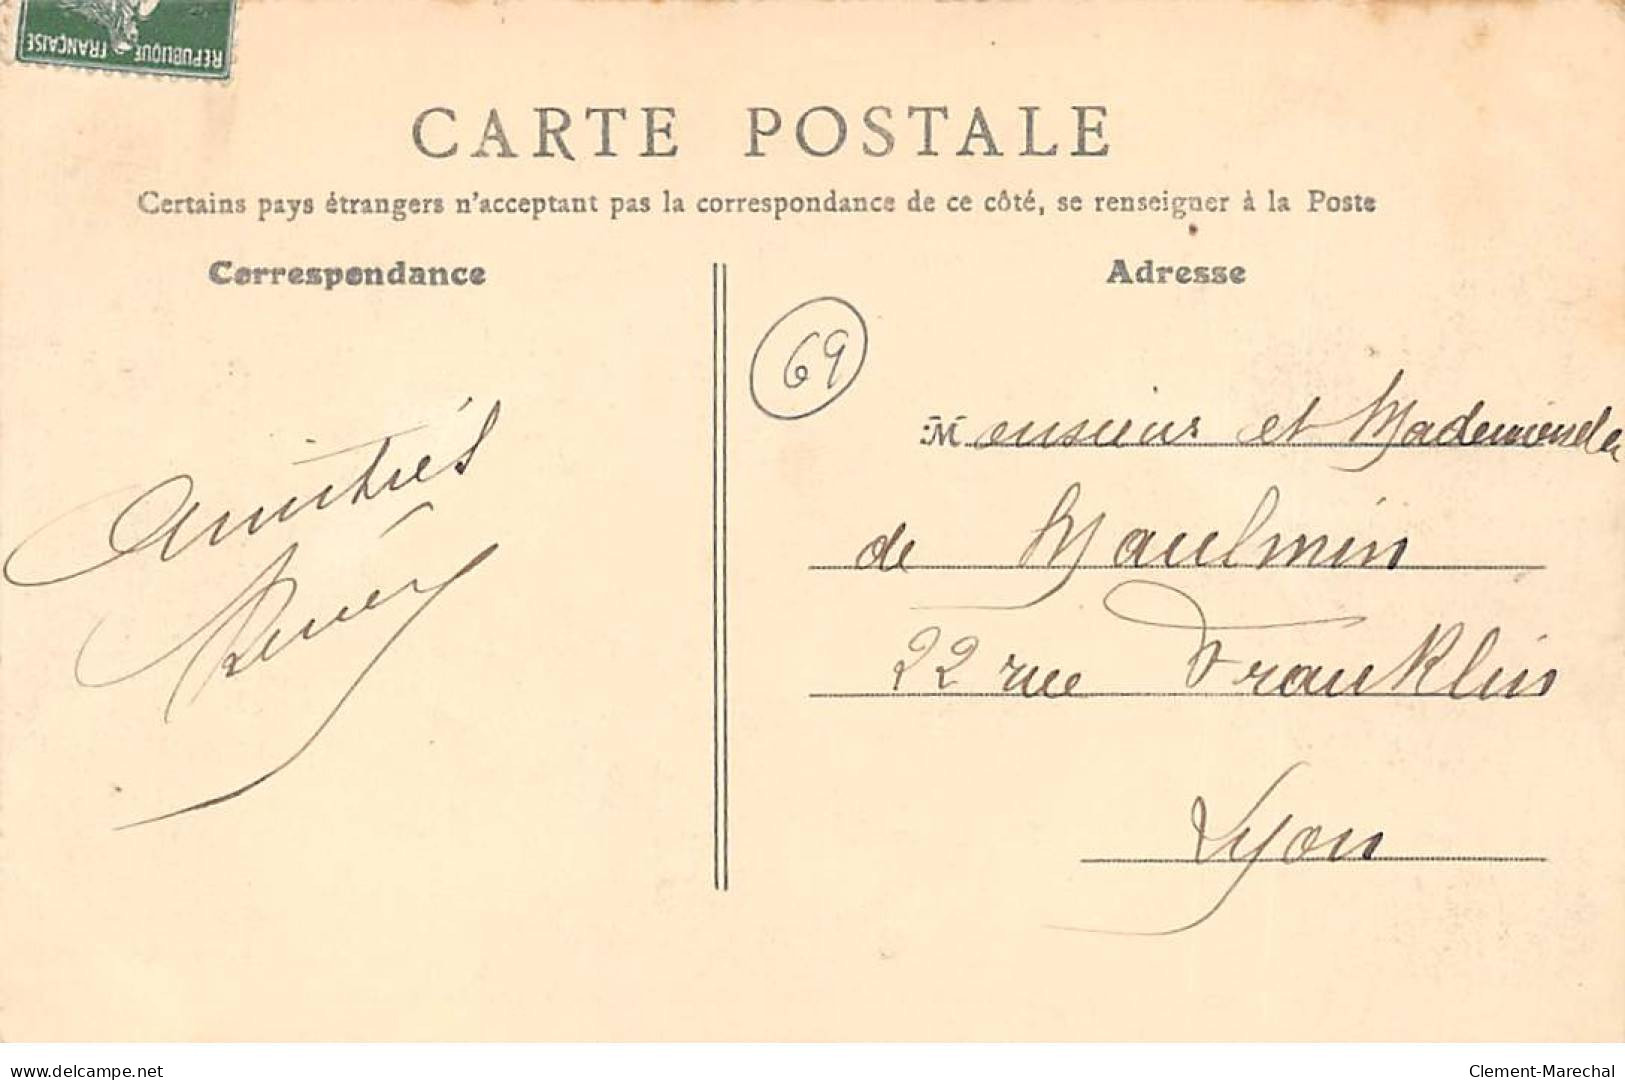 REPUBLIQUE FRANÇAISE
CARTE POSTALE
Certains pays étrangers n'acceptant pas la correspondance de ce côté, se renseigner à la Poste
Correspondance
Adresse
69
Monsieur et Mademoiselle
de Maulmin
22 rue Franklin
Lyon
Amitiés
delcampe.net
Clement-Marechal